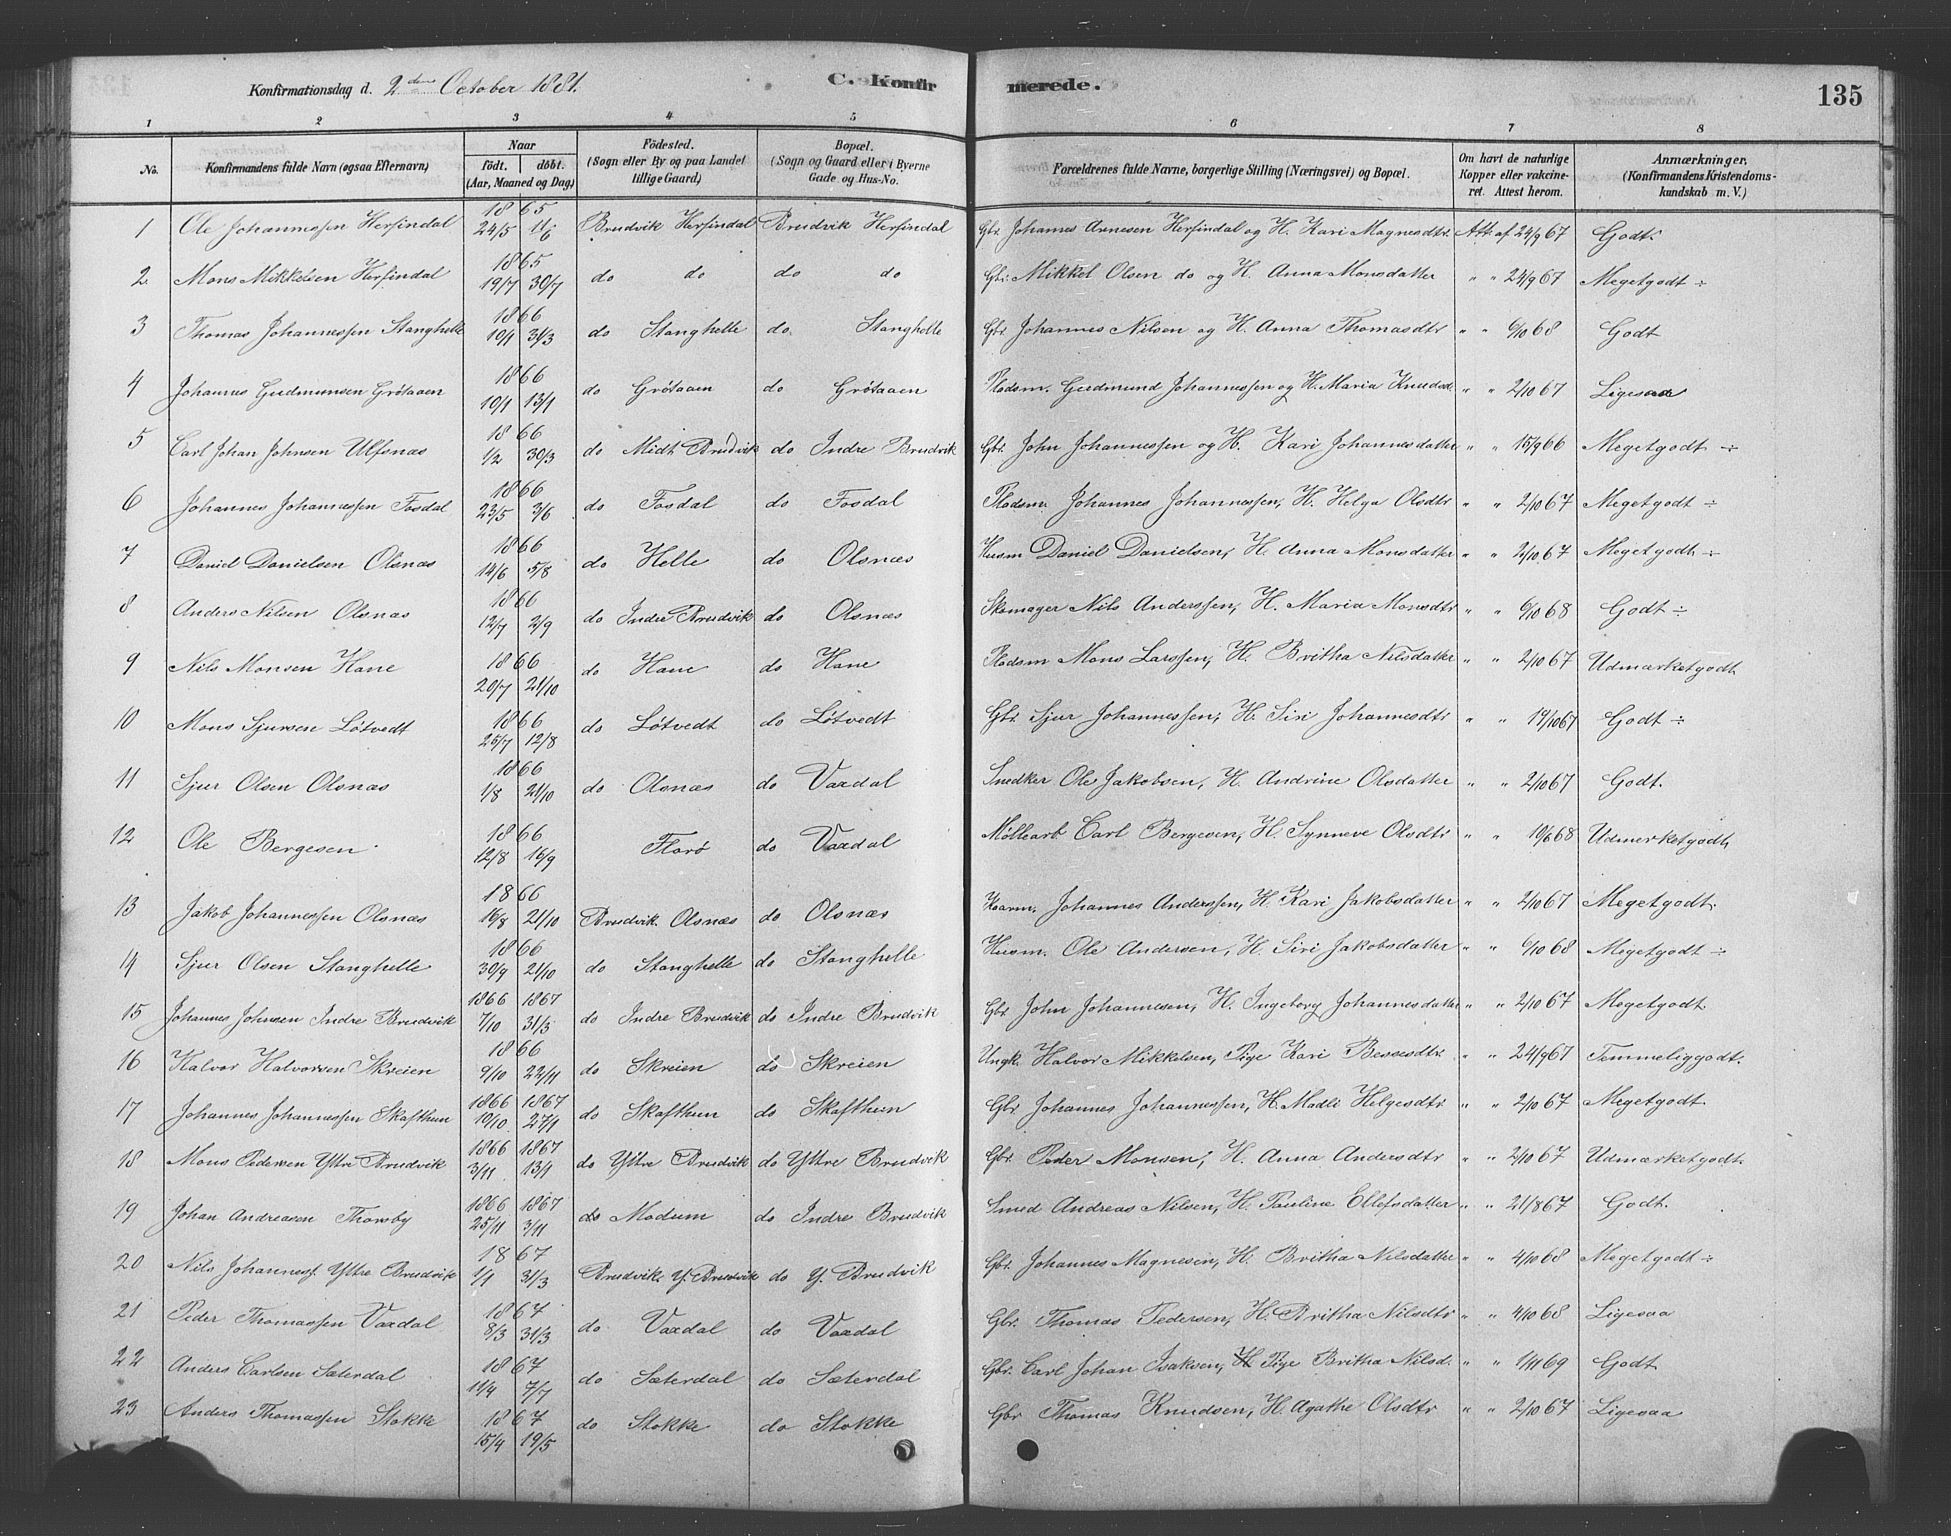 Konfirmationsdag d. 2den October 1881. C. Konfirmerede. 135
1 2 3 4 5 6 7 8
No. Konfirmandens fulde Navn (ogsaa Efternavn) Naar födt. döbt. (Aar, Maaned og Dag) Födested. (Sogn eller By og paa Landet tillige Gaard) Bopæl. (Sogn og Gaard eller i Byerne Gade og Hus-No. Forældrenes fulde Navne, borgerlige Stilling (Næringsvei) og Bopæl. Om havt de naturlige Kopper eller vakcineret. Attest herom. Anmærkninger. (Konfirmandens Kristendomskundskab m. V.)
1 Ole Johannessen Herfindal 1865 24/5 11/6 Brudvik Herfindal Brudvik Herfindal Gbr. Johannes Arnesen Herfindal og H. Kari Magnesdtr. Att af 24/9 67 Godt ÷
2 Mons Mikkelsen Herfindal 1865 19/7 30/7 do do do do Gbr. Mikkel Olsen do og H. Anna Monsdatter " " 24/9 67 Megetgodt ÷
3 Thomas Johannessen Stanghelle 1866 10/1 31/3 do Stanghelle do. Stanghelle Gbr Johannes Nilsen og H. Anna Thomasdtr " " 6/10 68 Godt
4 Johannes Gudmunsen Grötaaen 1866 10/1 13/1 do Grötaaen do Grötaaen Pladsm. Gudmund Johannessen og H. Maria Knudsd " " 2/10 67 Ligesaa
5 Carl Johan Johnsen Ulfsnæs 1866 1/2 30/3 do Midt Brudvik do Indre Brudvik Gbr. John Johannessen og H. Kari Johannesdatter " " 15/9 66 Megetgodt ÷
6 Johannes Johannessen Fosdal 1866 23/5 3/6 do Fosdal do Fosdal Pladsm Johannes Johannessen, H. Helga Olsdtr " " 2/10 67 Megetgodt ÷
7 Daniel Danielsen Olsnæs 1866 14/6 5/8 do Helle do Olsnæs Husm Daniel Danielsen, H. Anna Monsdatter " " 2/10 67 Megetgodt ÷
8 Anders Nilsen Olsnæs 1866 12/7 2/9 do Indre Brudvik do Olsnæs Skomager Nils Anderssen, H. Maria Monsdtr " " 6/10 68 Godt ÷
9 Nils Monsen Hane 1866 20/7 21/10 do Hane do Hane Pladsm Mons Larssen, H. Britha Nilsdatter " " 2/10 67 Udmærketgodt
10 Mons Sjursen Lötvedt 1866 25/7 12/8 do Lötvedt do Lötvedt Gbr. Sjur Johannessen, H. Siri Johannesdtr " " 19/10 67 Godt ÷
11 Sjur Olsen Olsnæs 1866 1/8 21/10 do Olsnæs do Vaxdal Snedker Ole Jakobsen, H. Andrine Olsdatter " " 2/10 67 Godt.
12 Ole Bergesen 1866 12/8 16/9 Florö do Vaxdal Möllearb Carl Bergesen, H. Synneve Olsdtr " " 10/6 68 Udmerketgodt
13 Jakob Johannessen Olsnæs 1866 16/8 21/10 Brudvik Olsnæs do Olsnæs Johannes Anderssen, H. Kari Jakobsdatter " " 2/10 67 Megetgodt.
14 Sjur Olsen Stanghelle 1866 30/9 21/10 do Stanghelle do Stanghelle Husm. Ole Andersen, H. Siri Jakobsdatter " " 6/10 68 Megetgodt ÷
15 Johannes Johnsen Indre Brudvik 1866 7/10 1867 31/3 do Indre Brudvik do Indre Brudvik Gbr John Johannesen, H. Ingeborg Johannesdatter " " 2/10 67 Megetgodt.
16 Halvor Halvorsen Skreien 1866 9/10 22/11 do Skreien do Skreien Ungk. Halvor Mikkelsen, Pige Kari Bessesdtr " " 24/9 67 Temmeliggodt.
17 Johannes Johannessen Skafthun 1866 10/10 1867 27/1 do Skafthun do Skafthun Gbr. Johannes Johannessen, H. Madli Helgesdtr " " 2/10 67 Megetgodt.
18 Mons Pedersen Yttre Brudvik 1866 3/11 1867 13/1 do Yttre Brudvik do Yttre Brudvik Gbr. Peder Monsen, H. Anna Andersdtr " " 2/10 67 Udmærketgodt.
19 Johan Andreasen Thorsby 1866 25/11 1867 3/11 do Modum do Indre Brudvik Smed Andreas Nilsen, H. Pauline Ellefsdatter " " 21/8 67 Godt.
20 Nils Johanness. Yttre Brudvik 1867 1/1 31/3 Brudvik Y. Brudvik do Y. Brudvik Gbr. Johannes Magnesen, H. Britha Nilsdatter " " 4/10 68 Megetgodt ÷
21 Peder Thomassen Vaxdal 1867 8/3 31/3 do Vaxdal do Vaxdal Gbr. Thomas Pedersen, H. Britha Nilsdtr " " 4/10 68 Ligesaa
22 Anders Carlsen Sæterdal 1867 11/4 7/7 do Sæterdal do Sæterdal Gbr. Carl Johan Isaksen, H Pige Britha Nilsd. " " 1/11 69 Godt
23 Anders Thomassen Stokke 1867 15/4 19/5 do Stokke do Stokke Gbr Thomas Knudsen, H. Agathe Olsdtr " " 2/10 67 Ligesaa